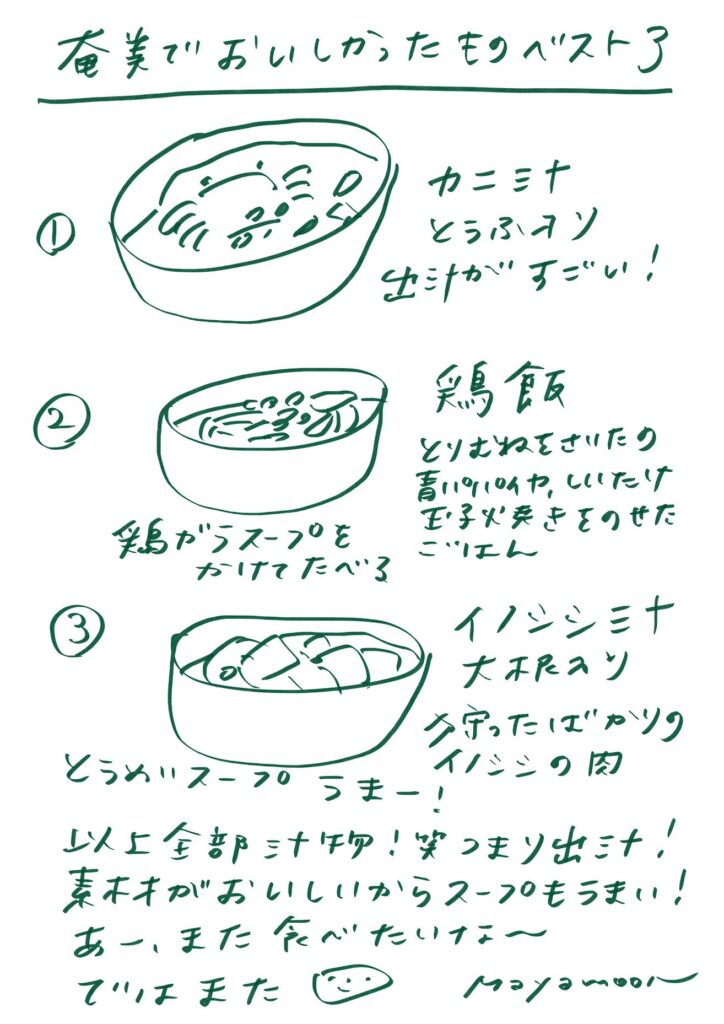 奄美でおいしかったものベスト3
①
カニ汁
とうふ入り
出汁がすごい!
②
鶏飯
とりむねをさいたの
青パパイヤ、しいたけ
玉子焼きをのせた
ごはん
鶏がらスープを
かけてたべる
③
イノシシ汁
大根入り
狩ったばかりの
イノシシの肉
とうめいスープ うまー!
以上全部汁物!笑つまり出汁!
素材がおいしいからスープもうまい!
あー、また食べたいな〜
ではまた
Mayamoon